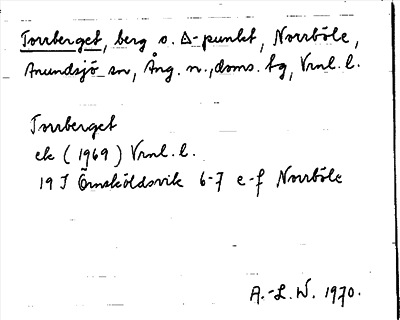 Torrberget, berg o. Δ-punkt, Norrböle,
Anundsjö sn, Ång. n., doms. tg, Vrnl. l.
Torrberget
ek (1969) Vrnl. l.
19 J Örnsköldsvik 6-7 e-f Norrböle
A.-L. W. 1970.